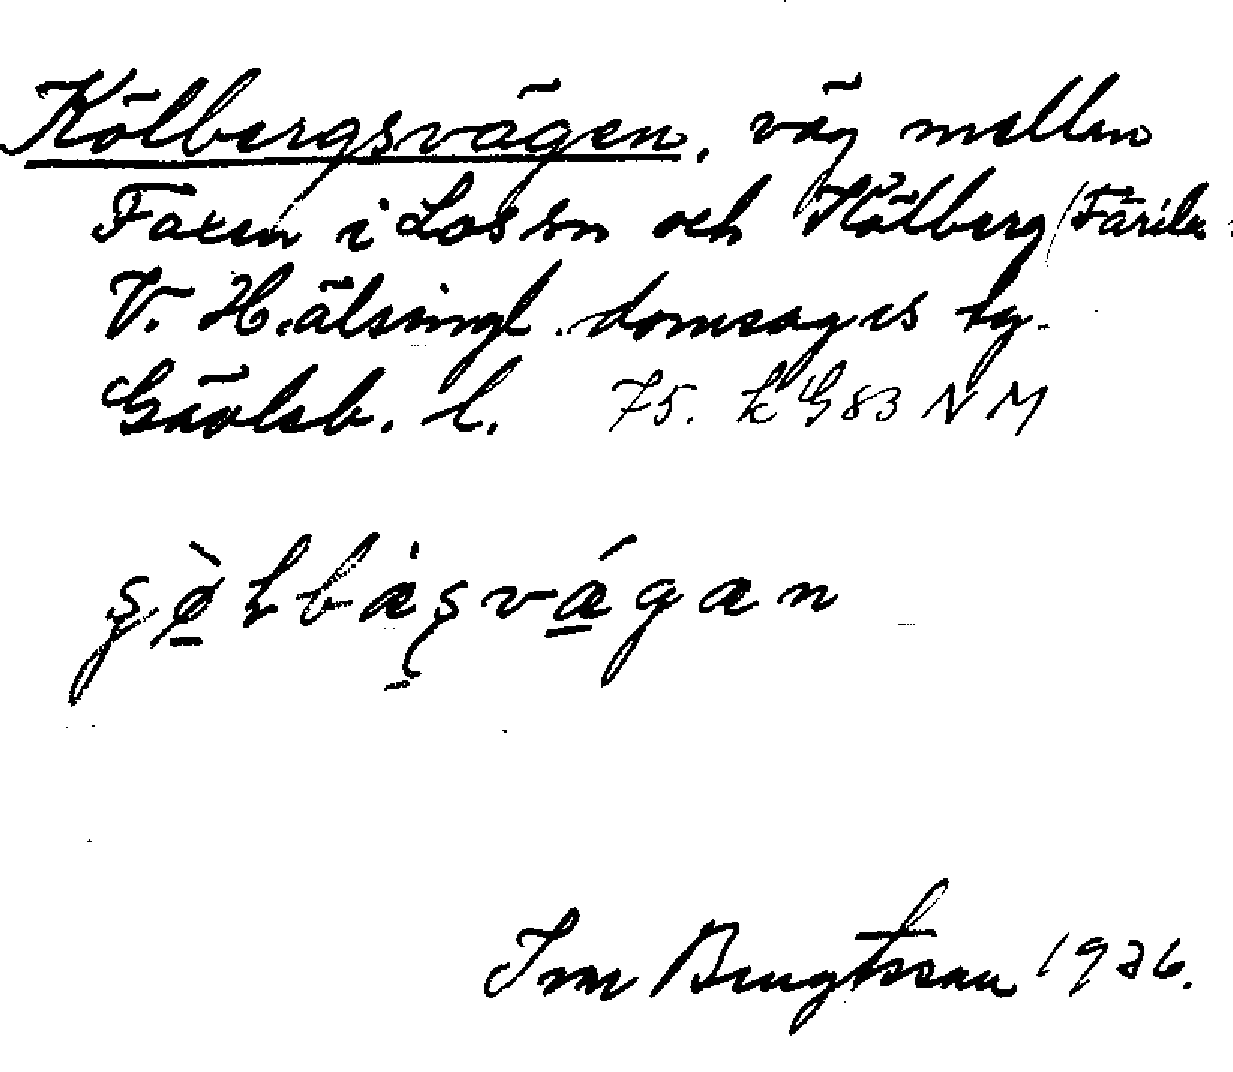 Kölbergsvägen, väg mellan
Faxen i Los sn och Kölberg (Färila
V. Hälsingl. domsagas tg.
Gävleb. l. 75. k G83 NM
bàsvágan
Im Bengtsson 1926.